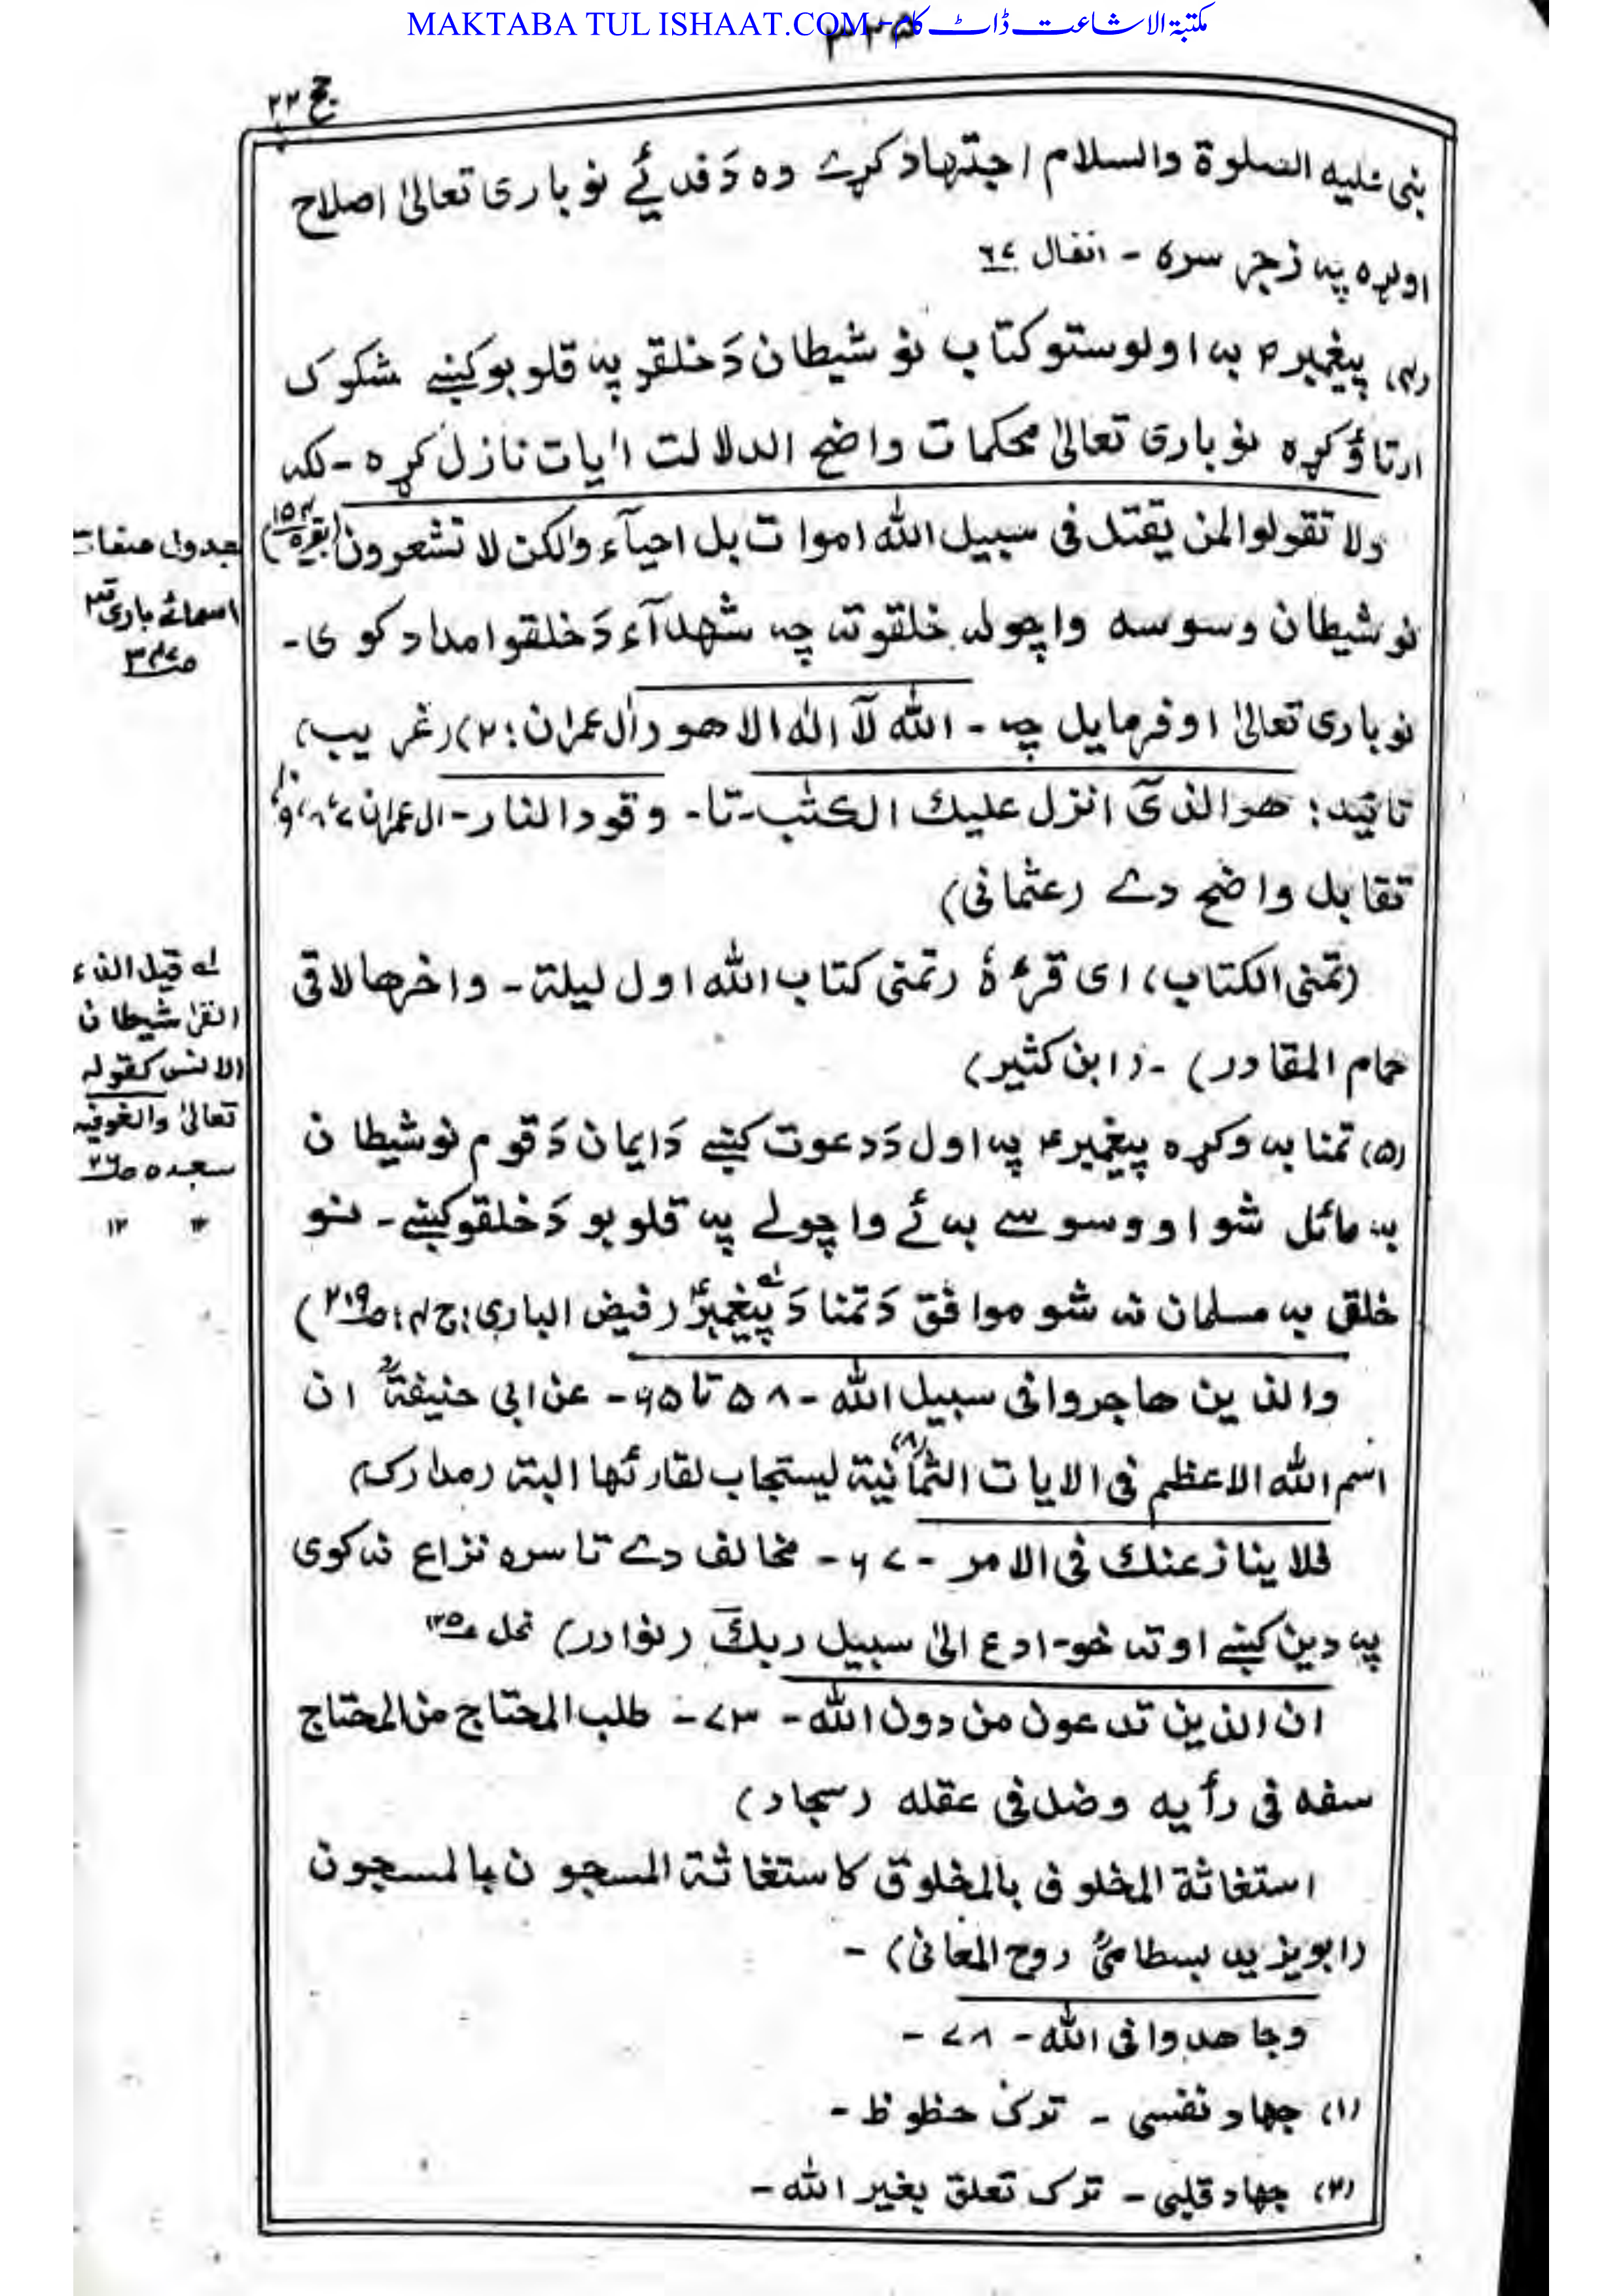 MAKTABA TUL ISHAAT.COM - مکتبة الاشاعت ڈاٹ کام
۳۲۵
حج ۲۲
بنی علیه الصلوة والسلام اجتهاد کړے وه دَ فدیئے نو باری تعالیٰ اصلاح
اوکړه په زجر سره - انفال ۶۷
(۴) پیغمبرؑ به اولوستو کتاب نو شیطان دَ خلقو په قلوبو کښے شکوک
ارتاؤ کړه نو باری تعالیٰ محکمات واضح الدلالت اٰیات نازل کړه - لکه
ولا تقولوا لمن یقتل فی سبیل الله اموات بل احیآء ولکن لا تشعرون (بقره ۱۵۴)
نو شیطان وسوسه واچوله خلقو ته چه شهدآء دَ خلقو امداد کوی -
نو باری تعالیٰ اوفرمایل چه - الله لآ اله الا هو (اٰل عمران: ۲) (غریب)
تائید: هو الذیٓ انزل علیك الکتٰب - تا - وقود النار - ال عمران ۷، ۸، و ۱۰
تقابل واضح دے (عثمانی)
(تمنی الکتاب) ای قرءهٗ (تمنی کتاب الله اول لیلة - واخرها لاقی
حمام المقادر) - (ابن کثیر)
(۵) تمنا به وکړه پیغمبرؑ په اول دَ دعوت کښے دَ ایمان دَ قوم نو شیطان
به مائل شو او وسوسے به ئے واچولے په قلوبو دَ خلقو کښے - نو
خلق به مسلمان نه شو موافق دَ تمنا دَ پیغمبرؑ (فیض الباری: ج ۴: ص ۲۱۹)
والذین هاجروا فی سبیل الله - ۵۸ تا ۶۵ - عن ابی حنیفةؒ ان
اسم الله الاعظم فی الایات الثمانیة (۸) لیستجاب لقارئها البتة (مدارک)
فلا ینازعنك فی الامر - ۶۷ - مخالف دے تا سره نزاع نه کوی
په دین کښے او ته خو - ادع الیٰ سبیل ربكَ (نوادر) نحل ۱۲۵
ان الذین تدعون من دون الله - ۷۳ - طلب المحتاج من المحتاج
سفه فی رأیه وضل فی عقله (سجاد)
استغاثة المخلوق بالمخلوق کاستغاثة المسجون بالمسجون
(ابو یزید بسطامیؒ روح المعانی) -
وجاهدوا فی الله - ۷۸ -
(۱) جهاد نفسی - ترک حظوظ -
(۲) جهاد قلبی - ترک تعلق بغیر الله -
جدول صفات
اسمائے باری
لے قیل الفاء
القرٰ شیطان
الانس کقوله
تعالیٰ والغوفیه
سجده ۲۶
۱۲ ۱۲